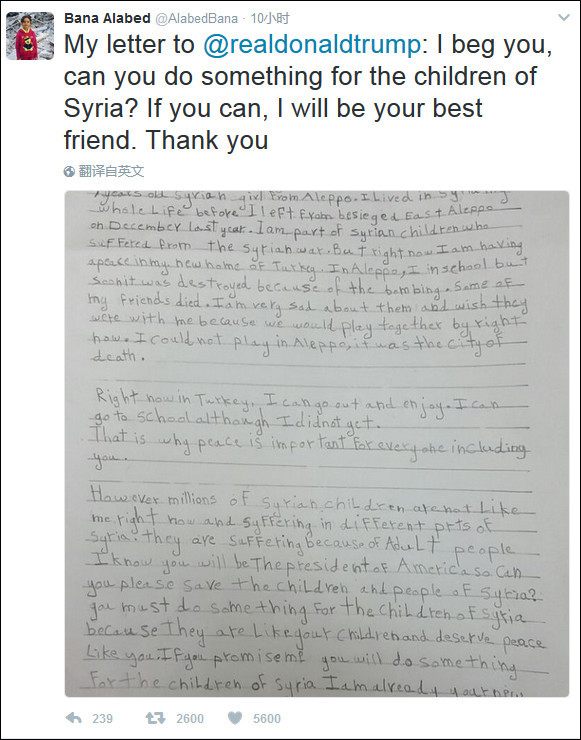 Bana Alabed @AlabedBana · 10小时
My letter to @realdonaldtrump: I beg you,
can you do something for the children of
Syria? If you can, I will be your best
friend. Thank you
翻译自英文
years old Syrian girl from Aleppo. I Lived in Syria
whole Life before I left from besieged East Aleppo
on December last year. I am part of Syrian children who
suffered from the Syrian war. But right now I am having
a peace in my new home of Turkey. In Aleppo, I in school but
soon it was destroyed because of the bombing. Some of
my friends died. I am very sad about them and wish they
were with me because we would play together by right
now. I could not play in Aleppo, it was the city of
death.
Right now in Turkey, I can go out and enjoy. I can
go to school although I did not yet.
That is why peace is important for everyone including
you.
However millions of Syrian children are not Like
me right now and syffering in different prts of
Syria. they are suffering because of Adult people
I know you will be The president of America so can
you please save the children and people of Syria?
you must do something for the children of Syria
because They are Like your children and deserve peace
Like you. If you promise me you will do something
for the children of Syria I am already your new
239 2600 5600